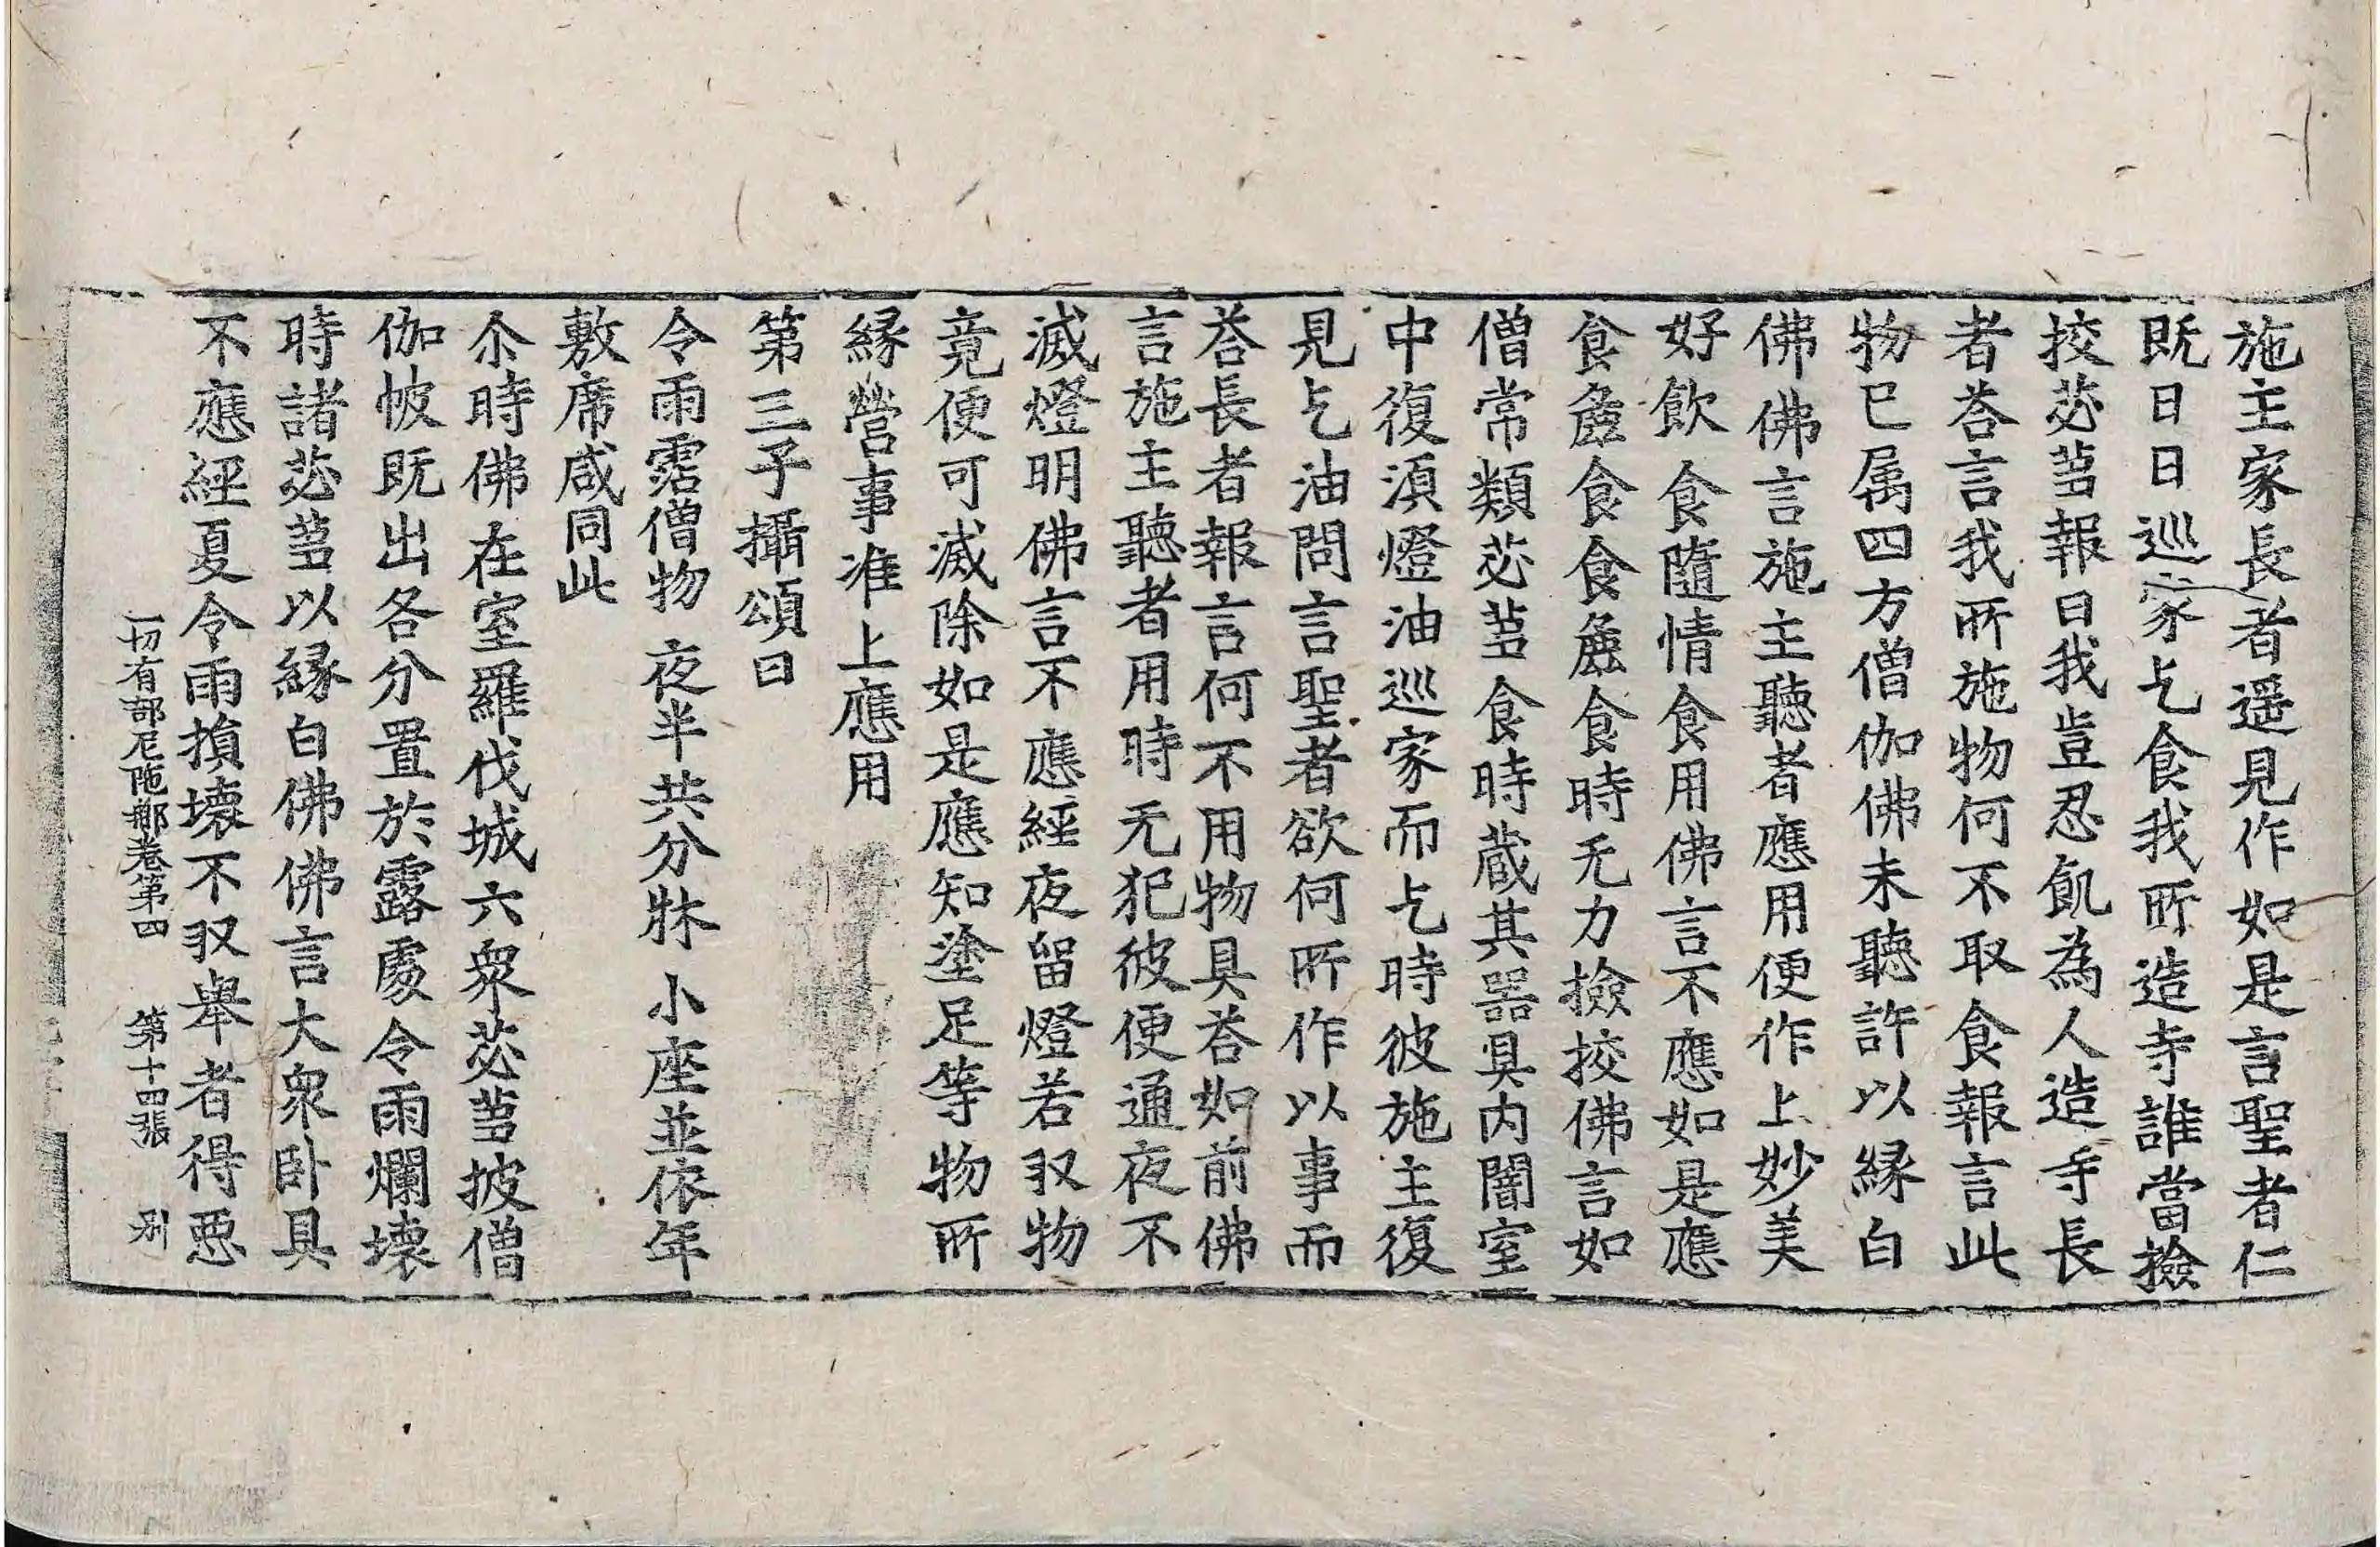 施主家長者遥見作如是言聖者仁
既日日巡家乞食我所造寺誰當撿
挍苾蒭報曰我豈忍飢為人造寺長
者荅言我所施物何不取食報言此
物已属四方僧伽佛未聽許以縁白
佛佛言施主聽者應用便作上妙美
好飲食隨情食用佛言不應如是應
食麁食食麁食時无力撿挍佛言如
僧常類苾蒭食時蔵其器具内闇室
中復湏燈油巡家而乞時彼施主復
見乞油問言聖者欲何所作以事而
荅長者報言何不用物具荅如前佛
言施主聽者用時无犯彼便通夜不
滅燈明佛言不應經夜留燈若収物
竟便可滅除如是應知塗足等物所
縁營事准上應用
第三子攝頌曰
令雨霑僧物 夜半共分牀 小座並依年
敷席咸同此
尒時佛在室羅伐城六衆苾蒭披僧
伽帔既出各分置於露處令雨爛壊
時諸苾蒭以縁白佛佛言大衆卧具
不應經夏令雨損壊不収舉者得惡
一切有部尼陁那卷第四 第十四張 別